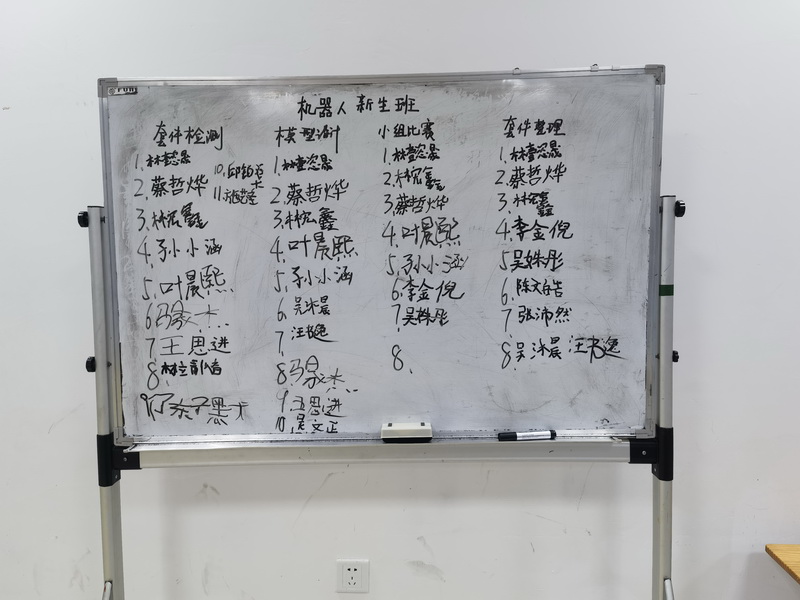 机器人新生班
套件检测
1.林 晟
2.蔡哲烨
3.林宏鑫
4.孙小涵
5.叶晨熙
6冯家杰
7王思进
8.林立
9
10.邱
11.
模型设计
1.林 晟
2.蔡哲烨
3.林宏鑫
4.叶晨熙
5.孙小涵
6.吴沐晨
7.汪书逸
8冯家杰
9王思进
10吴文正
小组比赛
1.林 晟
2.林宏鑫
3.蔡哲烨
4.叶晨熙
5.孙小涵
6.李金倪
7.吴姝彤
8.
套件整理
1.林 晟
2.蔡哲烨
3.林宏鑫
4.李金倪
5吴姝彤
6.陈文
7.张沛然
8.吴沐晨 汪书逸